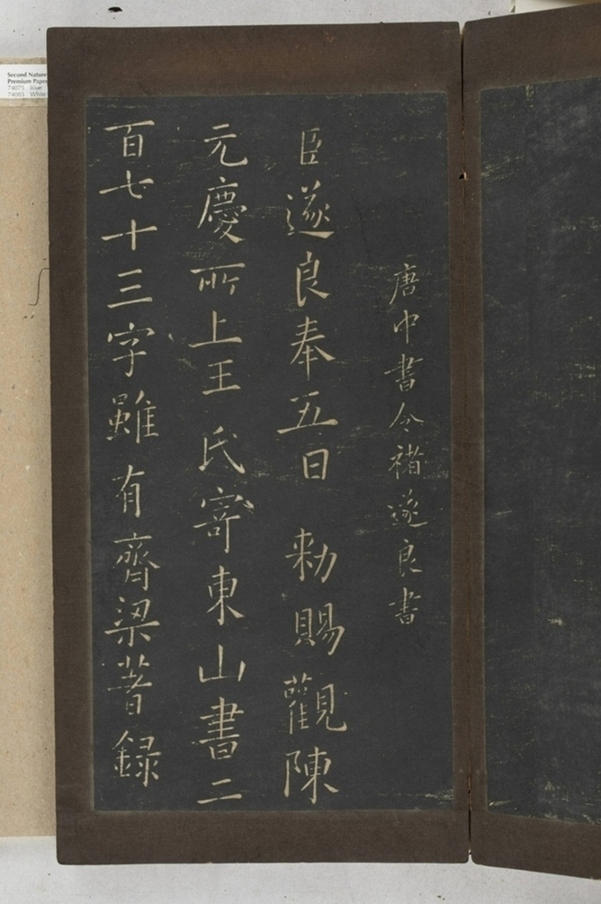 唐中書令褚遂良書
臣遂良奉五日 勑賜觀陳
元慶所上王氏寄東山書二
百七十三字雖有齊梁著録
Second Nature
Premium Paper
74075 Blue
74083 White